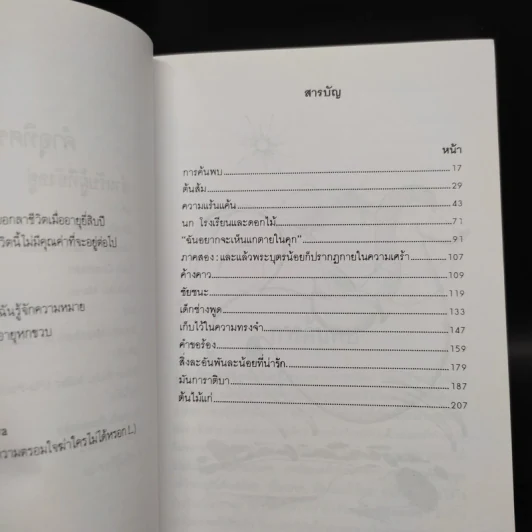 อกลาชีวิตเมื่ออายุยี่สิบปี
วิตนี้ไม่มีคุณค่าที่จะอยู่ต่อไป
ฉันรู้จักความหมาย
อายุหกขวบ
วามตรอมใจฆ่าใครไม่ได้หรอก (...)
สารบัญ
หน้า
การค้นพบ 17
ต้นส้ม 29
ความแร้นแค้น 43
นก โรงเรียนและดอกไม้ 71
“ฉันอยากจะเห็นแกตายในคุก” 91
ภาคสอง : และแล้วพระบุตรน้อยก็ปรากฏกายในความเศร้า 107
ค้างคาว 109
ชัยชนะ 119
เด็กช่างพูด 133
เก็บไว้ในความทรงจำ 147
คำขอร้อง 159
สิ่งละอันพันละน้อยที่น่ารัก 179
มันการาติบา 187
ต้นไม้แก่ 207